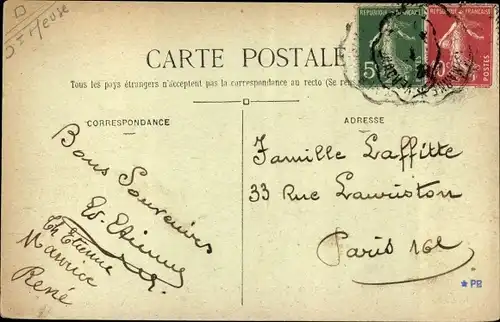 Dt Meuse
CARTE POSTALE
Tous les pays étrangers n'acceptent pas la correspondance au recto (Se re
CORRESPONDANCE
ADRESSE
REPUBLIQUE FRANÇAISE
5
REPUBLIQUE FRANÇAISE
10
POSTES
Bons Souvenirs
Et. Etienne
Ch Etienne
Maurice
René
Famille Laffitte
33 Rue Lauriston
Paris 16e
★ PB